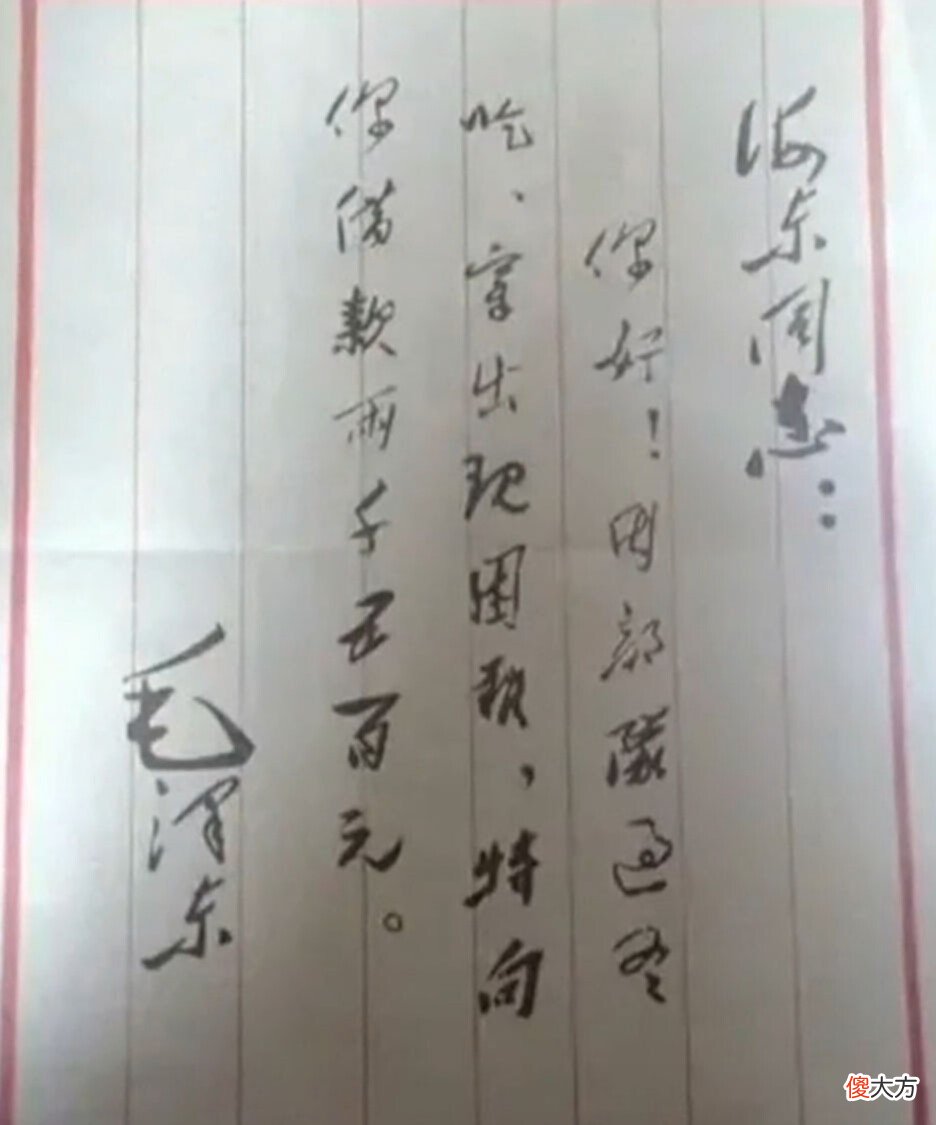 海东同志：
你好！因部隊过冬
吃、穿出现困难，特向
你借款两千五百元。
毛泽东
傻大方